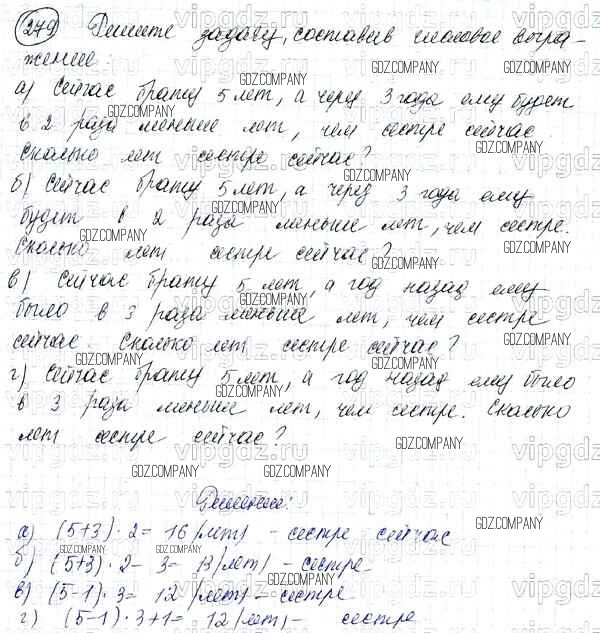 279 Решите задачу, составив числовое выра-
жение:
а) Сейчас брату 5 лет, а через 3 года ему будет
в 2 раза меньше лет, чем сестре сейчас.
Сколько лет сестре сейчас?
б) Сейчас брату 5 лет, а через 3 года ему
будет в 2 раза меньше лет, чем сестре.
Сколько лет сестре сейчас?
в) Сейчас брату 5 лет, а год назад ему
было в 3 раза меньше лет, чем сестре
сейчас. Сколько лет сестре сейчас?
г) Сейчас брату 5 лет, а год назад ему было
в 3 раза меньше лет, чем сестре. Сколько
лет сестре сейчас?
Решение:
а) (5+3)·2= 16 (лет) - сестре сейчас
б) (5+3)·2- 3= 13 (лет) - сестре
в) (5-1)·3= 12 (лет) - сестре
г) (5-1)·3+1= 12 (лет) - сестре